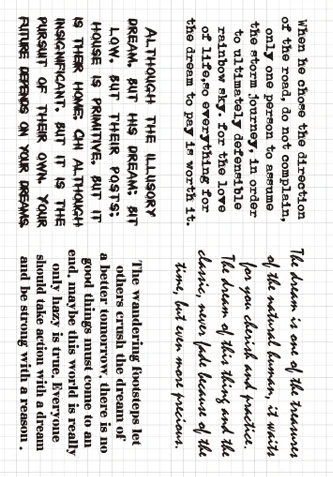 When he chose the direction
of the road, do not complain,
only one person to assume
the storm journey, in order
to ultimately defensible
rainbow sky. for the love
of life, so everything for
the dream to pay is worth it.
The dream is one of the treasures
of the natural human, it waits
for you cherish and practice.
The dream of this thing and the
classic, never fade because of the
time, but even more precious.
ALTHOUGH THE ILLUSORY
DREAM, BUT HIS DREAM; BIT
LOW, BUT THEIR POSTS;
HOUSE IS PRIMITIVE, BUT IT
IS THEIR HOME; CHI ALTHOUGH
INSIGNIFICANT, BUT IT IS THE
PURSUIT OF THEIR OWN. YOUR
FUTURE DEPENDS ON YOUR DREAMS.
The wandering footsteps let
others crush the dream of
a better tomorrow, there is no
good things must come to an
end, maybe this world is really
only hazy is true. Everyone
should take action with a dream
and be strong with a reason.